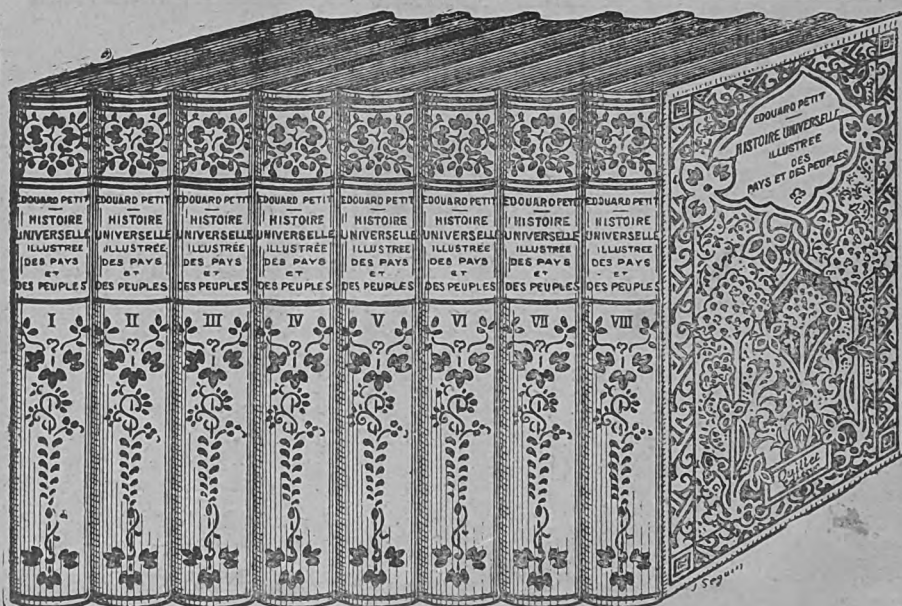 EDOUARD PETIT
HISTOIRE
UNIVERSELLE
ILLUSTRÉE
DES PAYS
ET
DES PEUPLES
I
EDOUARD PETIT
HISTOIRE
UNIVERSELLE
ILLUSTRÉE
DES PAYS
ET
DES PEUPLES
II
EDOUARD PETIT
HISTOIRE
UNIVERSELLE
ILLUSTRÉE
DES PAYS
ET
DES PEUPLES
III
EDOUARD PETIT
HISTOIRE
UNIVERSELLE
ILLUSTRÉE
DES PAYS
ET
DES PEUPLES
IV
EDOUARD PETIT
HISTOIRE
UNIVERSELLE
ILLUSTRÉE
DES PAYS
ET
DES PEUPLES
V
EDOUARD PETIT
HISTOIRE
UNIVERSELLE
ILLUSTRÉE
DES PAYS
ET
DES PEUPLES
VI
EDOUARD PETIT
HISTOIRE
UNIVERSELLE
ILLUSTRÉE
DES PAYS
ET
DES PEUPLES
VII
EDOUARD PETIT
HISTOIRE
UNIVERSELLE
ILLUSTRÉE
DES PAYS
ET
DES PEUPLES
VIII
EDOUARD PETIT
HISTOIRE UNIVERSELLE
ILLUSTRÉE
DES
PAYS ET DES PEUPLES
Quillet
J Seguin